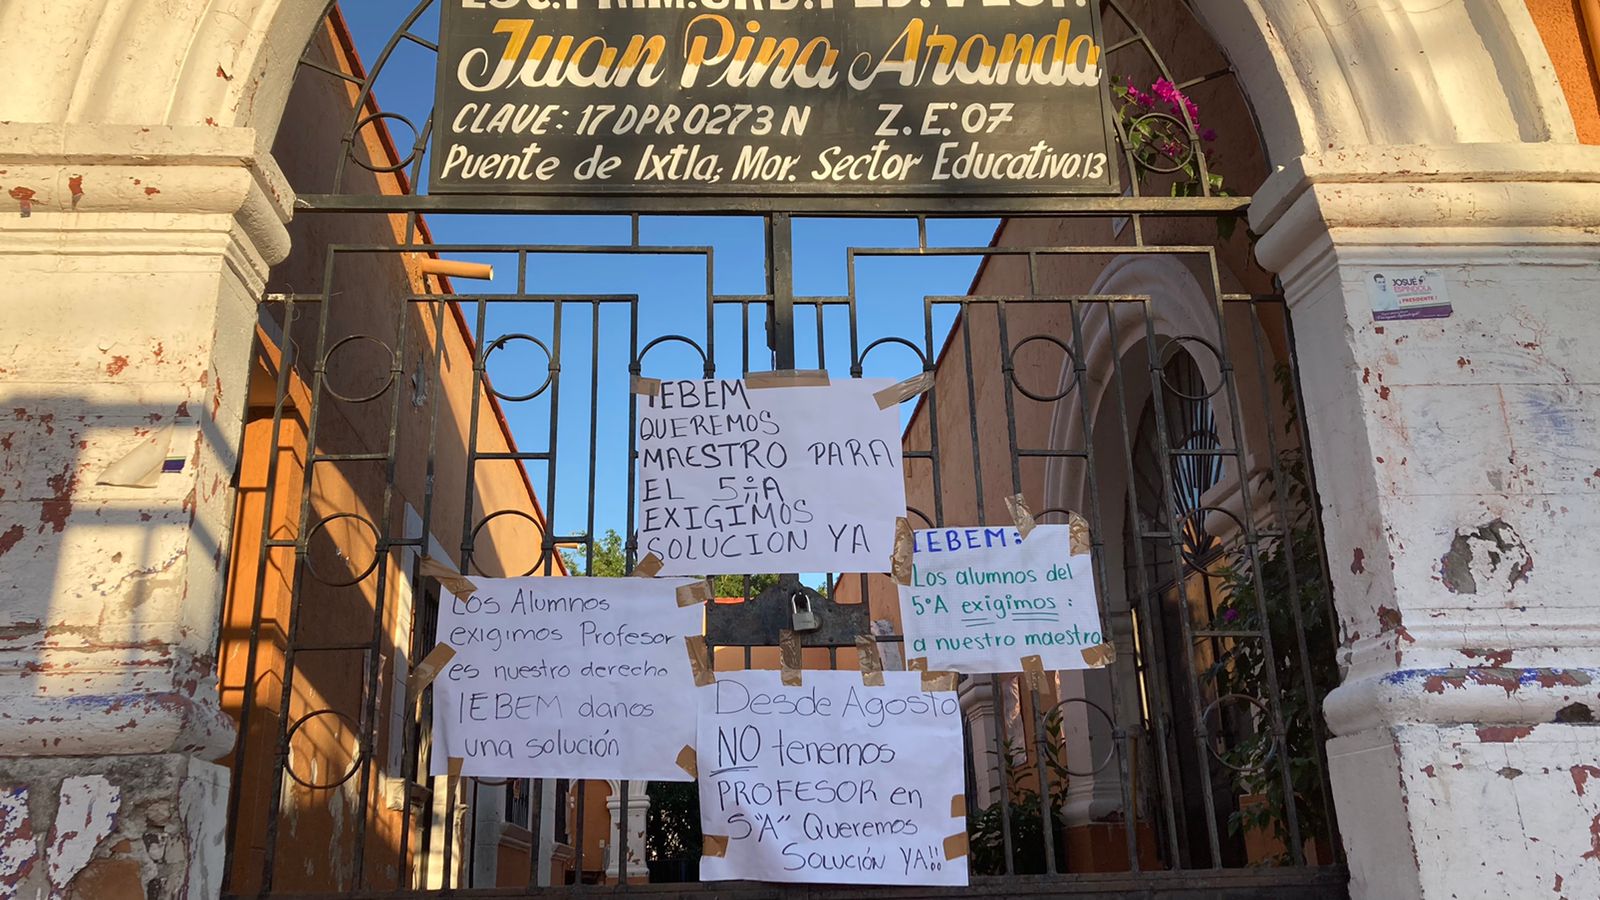 ESC. PRIM. URB. FED. VESP.
Juan Pina Aranda
CLAVE: 17DPR0273N Z.E. 07
Puente de Ixtla; Mor. Sector Educativo.13
JOSUÉ
ESPINDOLA
¡PRESIDENTE!
IEBEM
QUEREMOS
MAESTRO PARA
EL 5° "A
EXIGIMOS
SOLUCION YA
IEBEM:
Los alumnos del
5°A exigimos:
a nuestro maestro
Los Alumnos
exigimos Profesor
es nuestro derecho
IEBEM danos
una solución
Desde Agosto
NO tenemos
PROFESOR en
5"A" Queremos
Solución YA!!